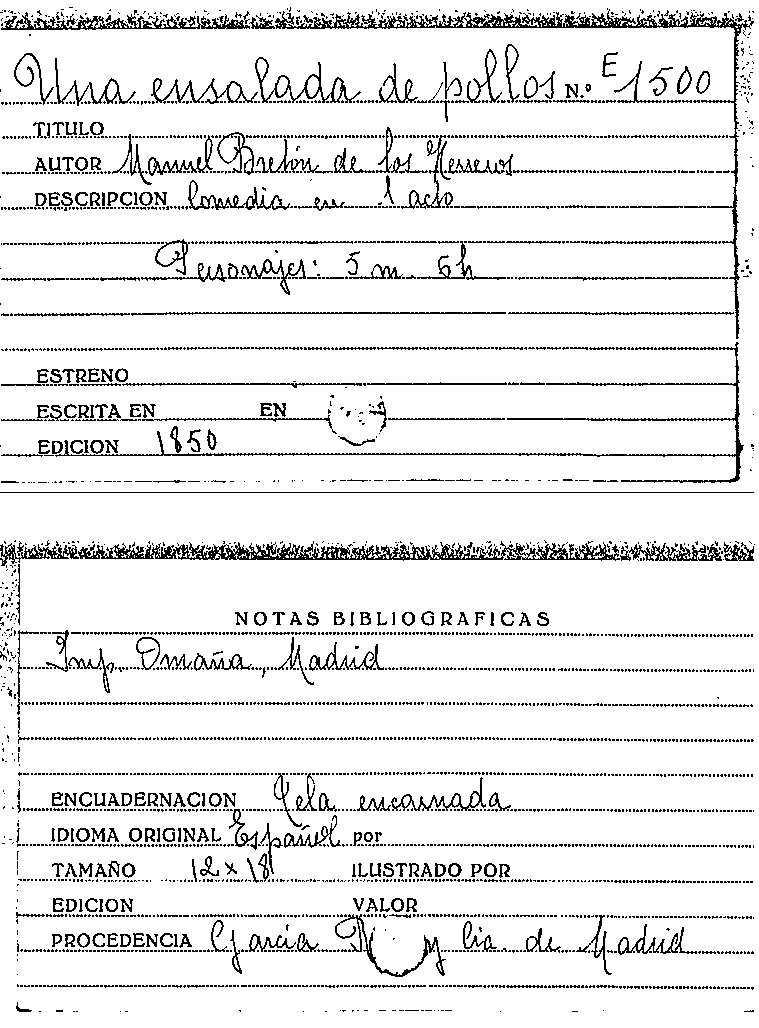 Una ensalada de pollos N.º E 1500
TITULO
AUTOR Manuel Bretón de los Herreros
DESCRIPCION Comedia en 1 acto
Personajes: 5 m. 6h
ESTRENO
ESCRITA EN EN
EDICION 1850
NOTAS BIBLIOGRAFICAS
Imp. Omaña, Madrid
ENCUADERNACION Tela encarnada
IDIOMA ORIGINAL Español por
TAMAÑO 12 x 18 ILUSTRADO POR
EDICION VALOR
PROCEDENCIA García y Cia de Madrid